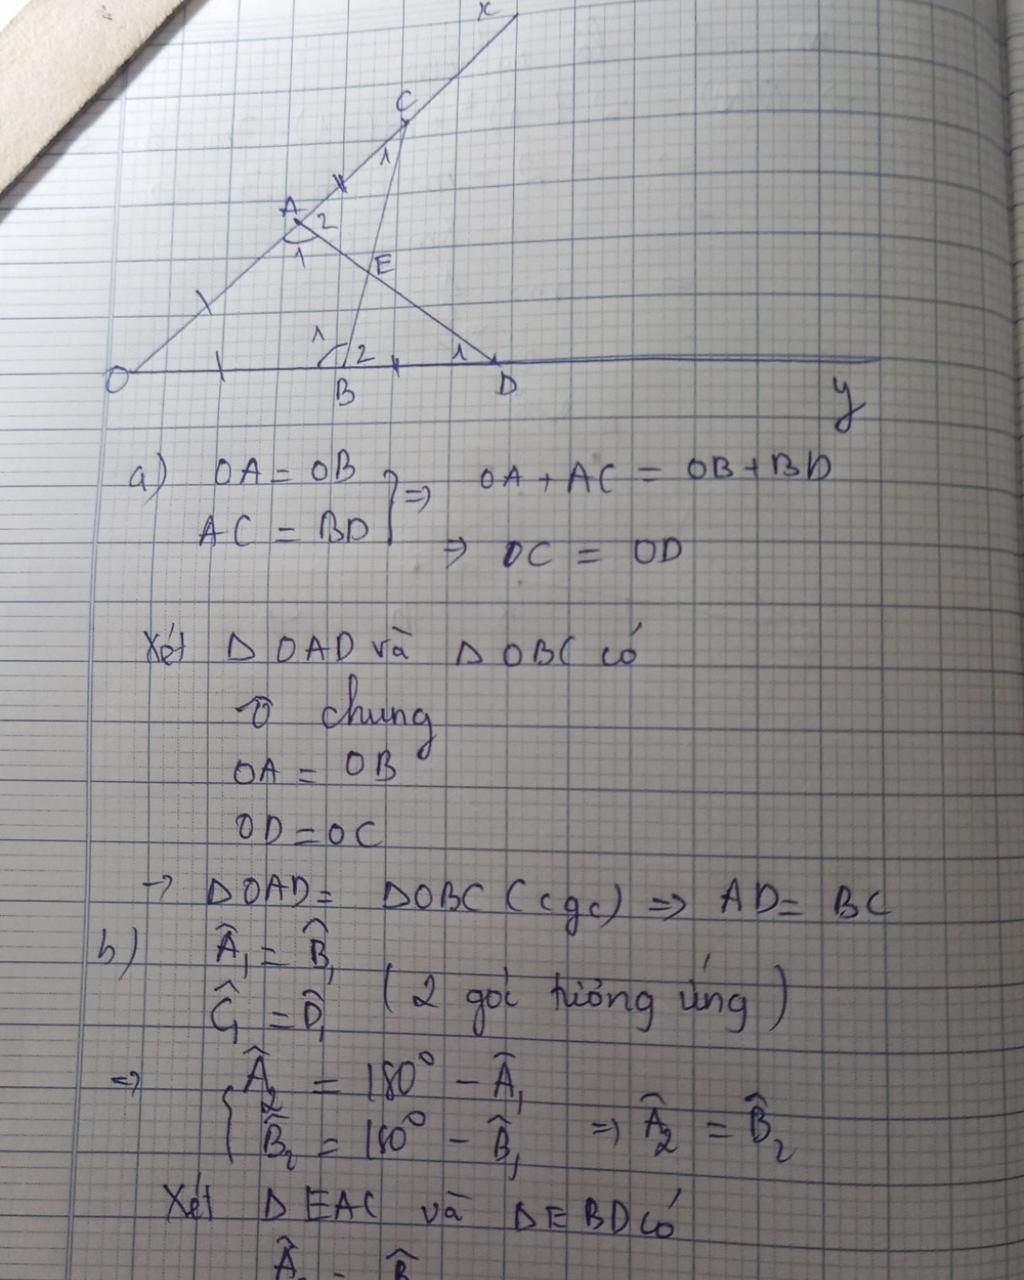 x
C
1
A 2
1
E
1 2 1
O B D y
a) OA = OB } => OA + AC = OB + BD
AC = BD => OC = OD
Xét Δ OAD và Δ OBC có
Ô chung
OA = OB
OD = OC
-> ΔOAD = ΔOBC (cgc) => AD = BC
b) Â₁ = B̂₁
Ĉ₁ = D̂₁ (2 góc tương ứng)
=> { Â₂ = 180° - Â₁
B̂₂ = 180° - B̂₁ => Â₂ = B̂₂
Xét Δ EAC và Δ EBD có